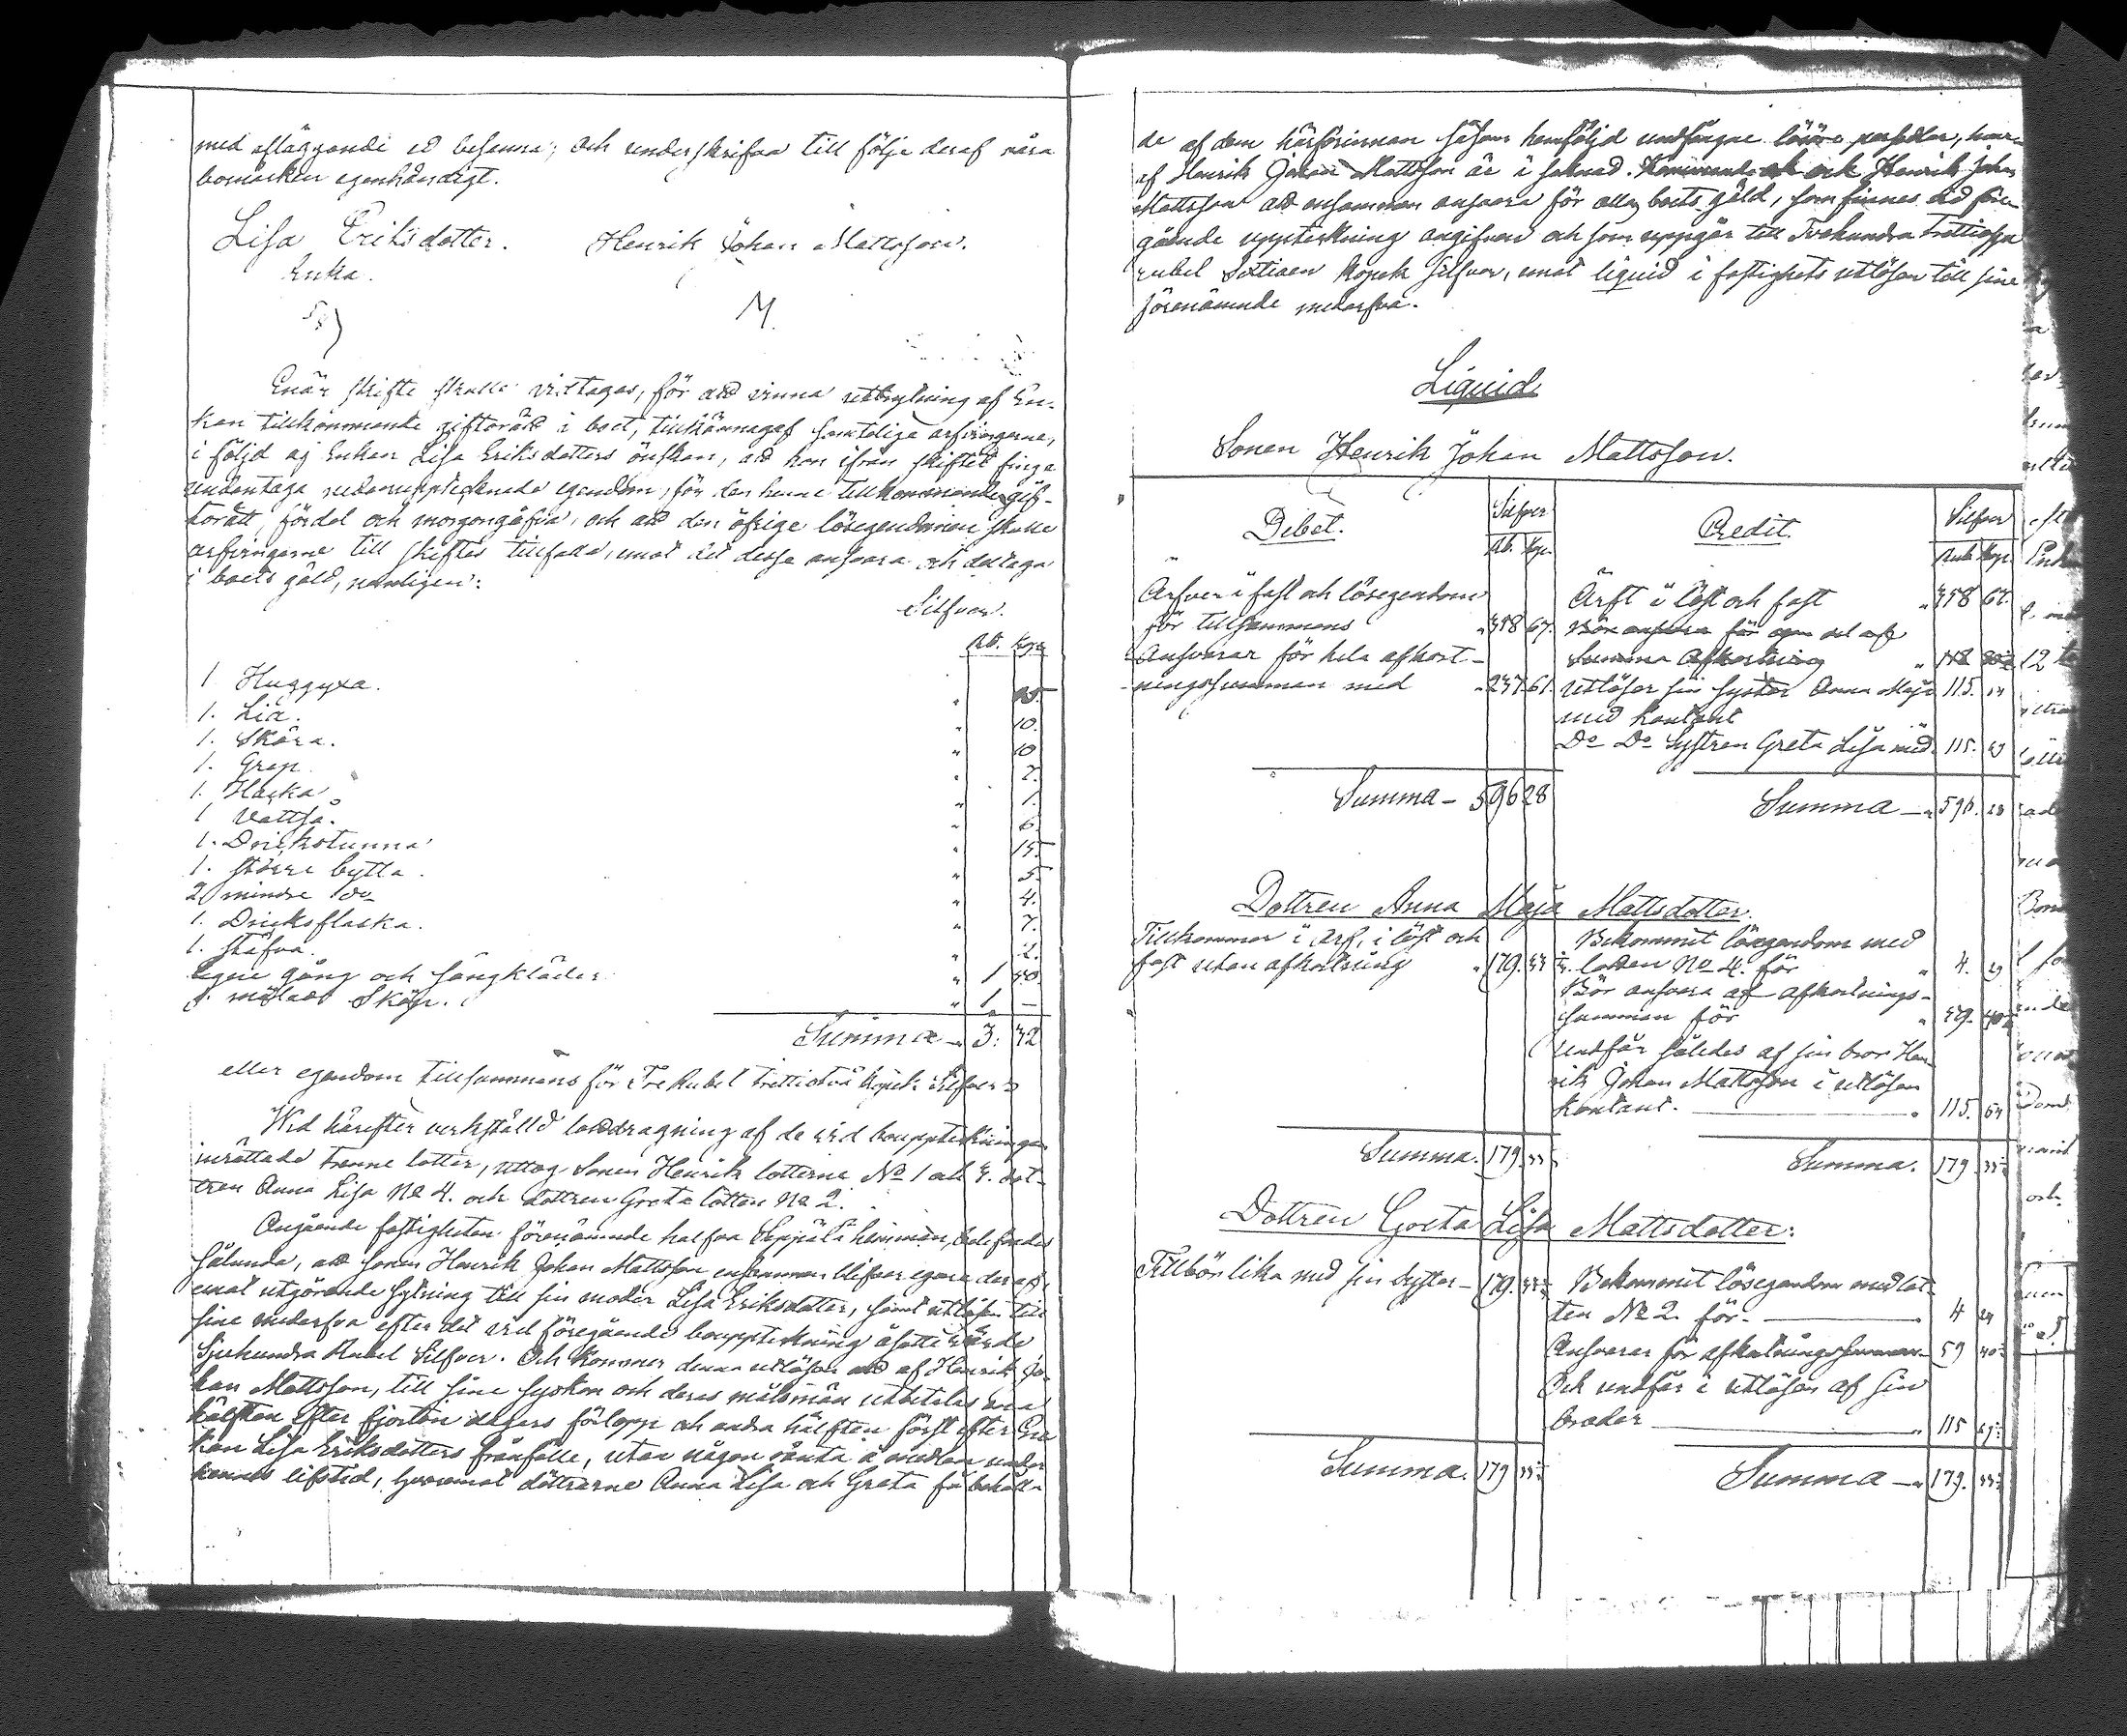 med afläggande ed besanna; och underskrifva till följe deraf våra
bomärken egenhändigt.
Lisa Eriksdotter. Henrik Johan Mattsson.
Enka.
M
Enär skifte skulle vidtagas, för att vinna utbrytning af En-
kan tillkommande giftorätt i boet, tillkännagaf samtelige arfvingarne,
i följd af Enkan Lisa Eriksdotters önskan, att hon ifrån skiftet finge
undantaga nedanupptecknade egendom, för den henne tillkommande gif-
torätt, fördel och morgongåfva, och att den öfrige lösegendomen skulle
arfvingarne till skiftes tillfalla, emot det dessa ansvara och deltaga
i boets gäld, nemligen:
Silfver.
Rub. Kop.
1 Huggyxa. " 15.
1. Lia. " 10.
1. Skära. " 10
1. Grep. " 7.
1. Hacka " 1.
1 Vattså. " 6.
1. Drickstunna " 15
1. större bytta. " 5.
2 mindre do " 4.
1. Dricksflaska. " 7.
1. stäfva. " 2.
Egne gång och sängkläder " 1 50.
1. målad Skåp. " 1 —
Summa " 3. 32
eller egendom tillsammans för Tre Rubel trettiotvå kopek Silfver
Wid härefter verkställd lottdragning af de vid bouppteckningen
inrättade trenne lotter, uttog Sonen Henrik lotterne No 1 och 3. dot-
tren Anna Lisa No 4. och dottren Greta lotten No 2.
Angående fastigheten förenämnde halfva Seppälä hemman,
sålunda, att sonen Henrik Johan Mattsson ensamman blifver egare deraf,
emot utgörande sytning till sin moder Lisa Eriksdotter, samt utlösen till
sine medarfva efter det vid föregående bouppteckning åsatte värde
Sjuhundra Rubel Silfver. Och kommer denna utlösen att af Henrik Jo-
han Mattsson, till sine syskon och deras målsmän utbetalas ena
hälften efter fjorton dagars förlopp och andra hälften först efter En-
kan Lisa Eriksdotters frånfälle, utan någon ränta å medlen under
hennes lifstid, hvaremot döttrarne Anna Lisa och Greta få behålla
de af dem härförinnan såsom hemföljd undfångne lösöre persedlar, hvar-
af Henrik Johan Mattsson är i saknad. Kommande och Henrik Johan
Mattsson att ensamman ansvara för alla boets gäld, som finnes vid före-
gående uppteckning angifven och som uppgår till Tvåhundra trettiosju
rubel Sextioen kopek silfver, emot liquid i fastighets utlösen till sine
förenämnde medarfva.
Liquid
Sonen Henrik Johan Mattsson.
Debet. Silfver Rb. Kop. Credit. Silfver Rub Kop.
Ärfver i fast och lösegendom
för tillsammans " 358 67.
Ansvarar för hela afkort-
ningssumman med " 237 61.
Summa — 596 28
Ärft i löst och fast " 358 67.
Bör ansvara för egen del af
Summa Afkortning "
Utlöser sin syster Anna Maja 115.
med kontant
Do Do Systren Greta Lisa med 115.
Summa — " 596. 28
Dottren Anna Maja Mattsdotter.
Tillkommer i Arf, i löst och
fast utan afkortning " 179.
Summa. 179
Bekommit lösegendom med
lotten No 4. för " 4.
Bör ansvara af afkortnings-
summan för " 59. 40
Undfår således af sin bror Hen
rik Johan Mattsson i utlösen
kontant. — " 115.
Summa. 179
Dottren Greta Lisa Mattsdotter:
Tillhör lika med sin syster — 179.
Summa. 179
Bekommit lösegendom med lot-
ten No 2. för. — 4
Ansvarar för afkortningssumman 59 40
Och undfår i utlösen af sin
broder — " 115
Summa — " 179.